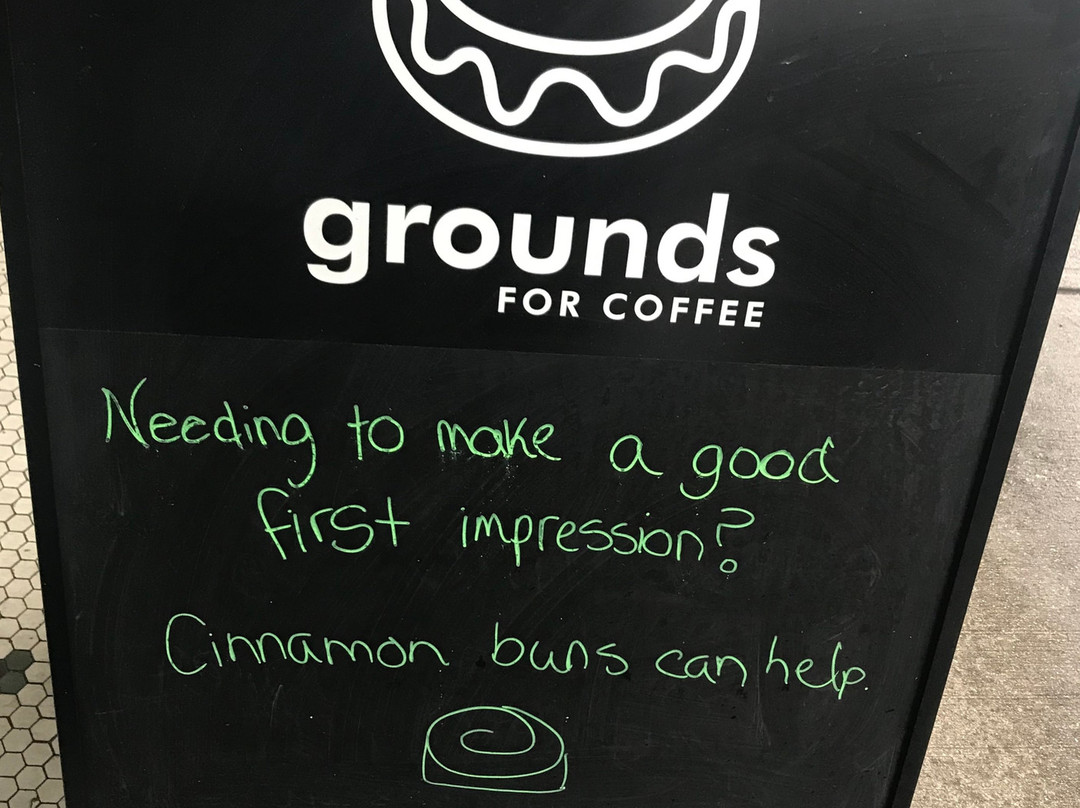 grounds
FOR COFFEE
Needing to make a good
first impression?
Cinnamon buns can help.